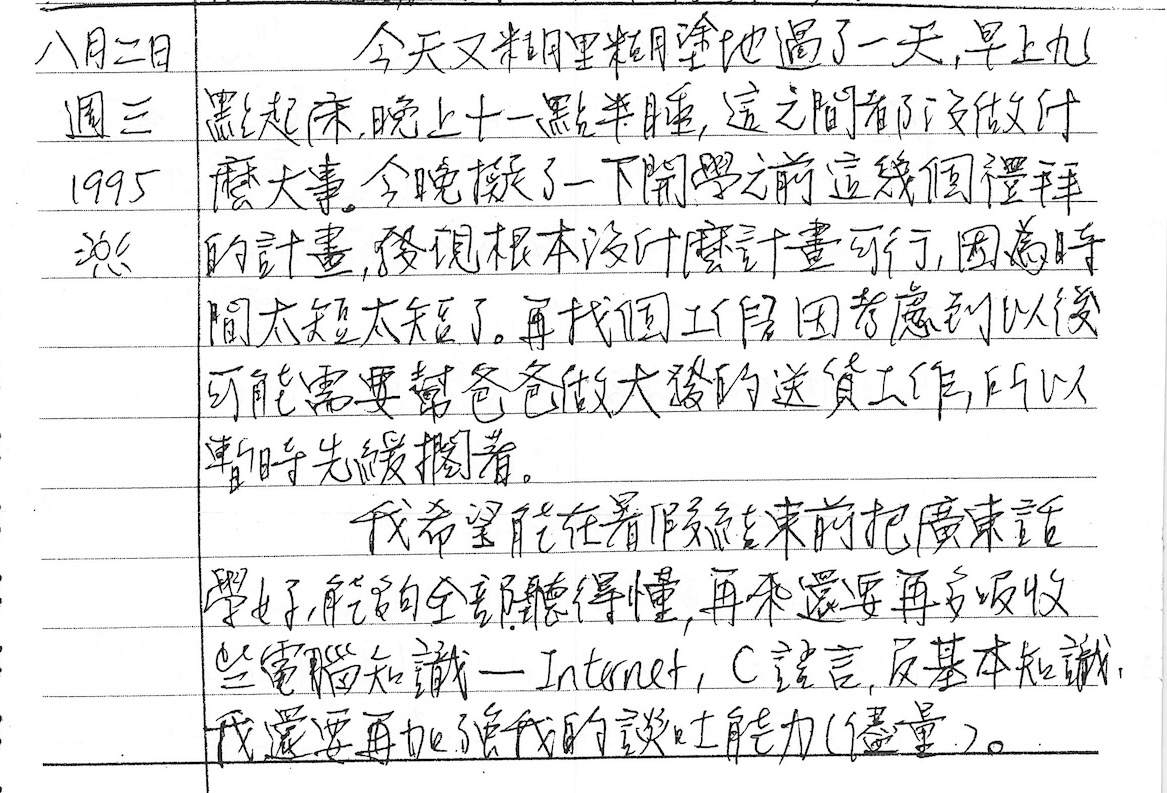 八月二日
週三
1995
今天又糊里糊塗地過了一天,早上九
點起床,晚上十一點半睡,這之間都沒做什
麼大事。今晚擬了一下開學之前這幾個禮拜
的計畫,發現根本沒什麼計畫可行,因為時
間太短太短了。再找個工作嘛因考慮到以後
可能需要幫爸爸做大發的送貨工作,所以
暫時先緩擱著。
我希望能在暑假結束前把廣東話
學好,能夠全部聽得懂,再來還要再多吸收
些電腦知識—Internet, C語言,及基本知識.
我還要再加強我的談吐能力(儘量)。